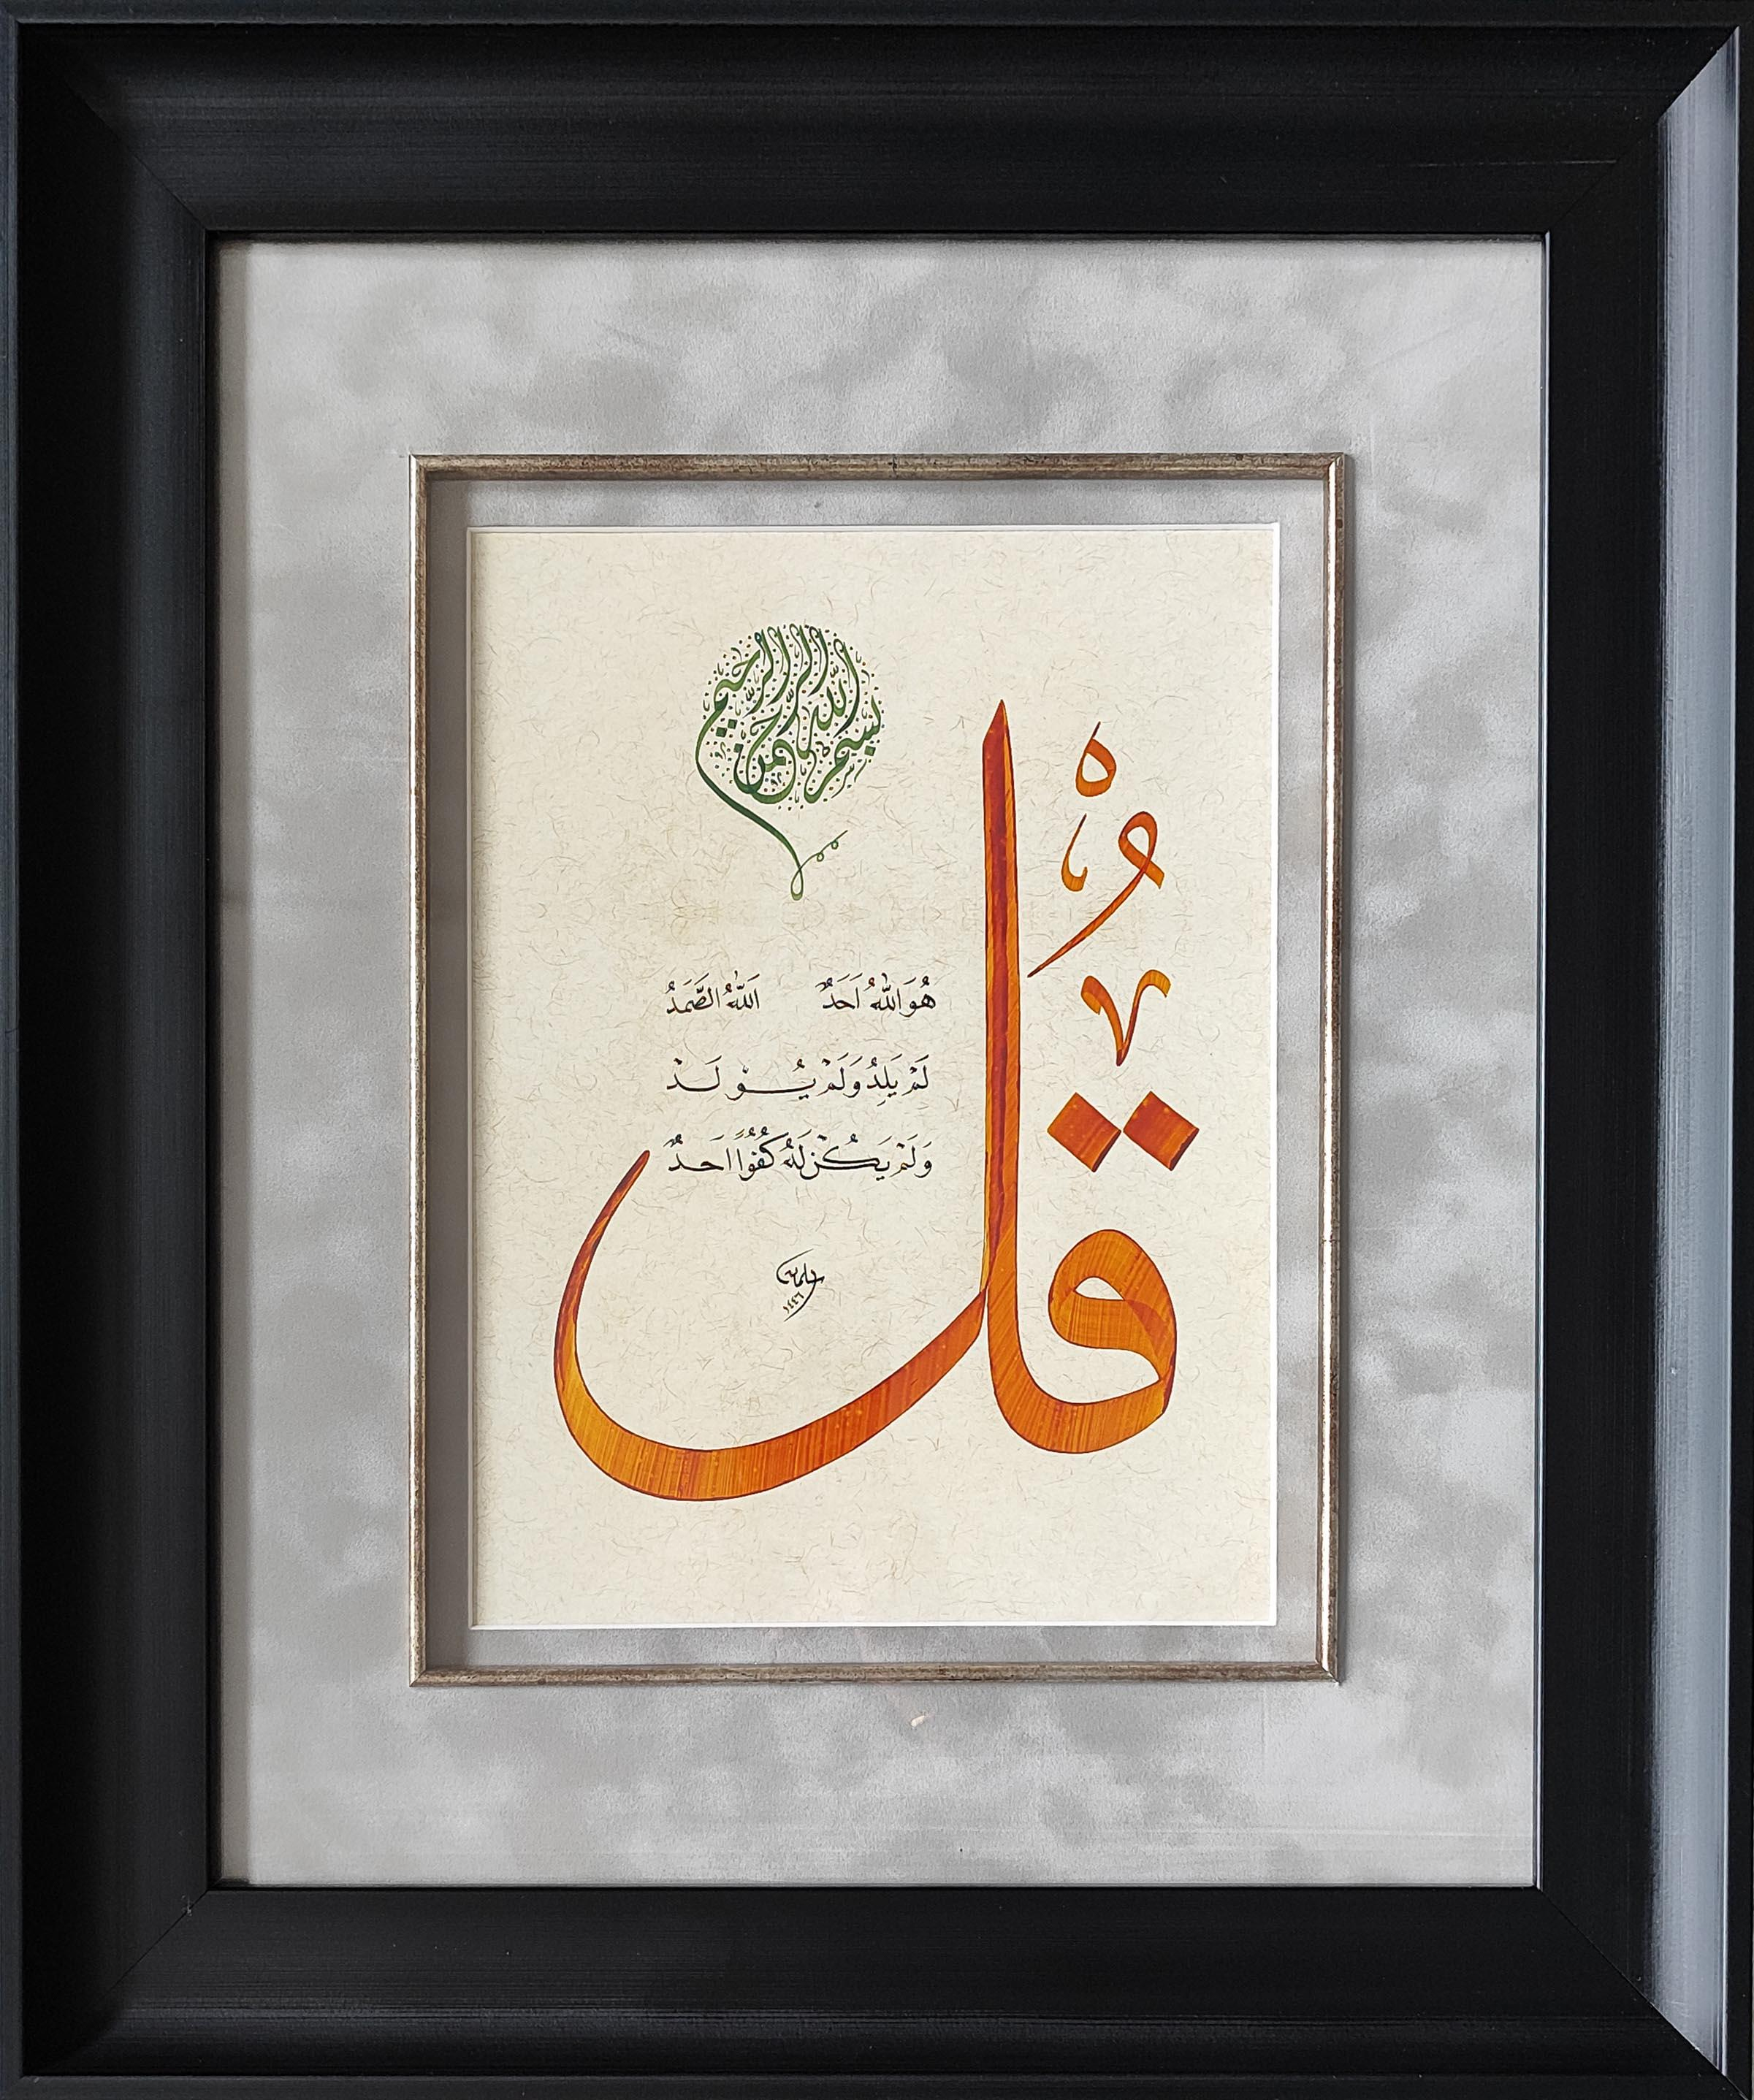 بسم الله الرحمن الرحيم
قُلْ
هُوَ اللّٰهُ اَحَدٌ اَللّٰهُ الصَّمَدُ
لَمْ يَلِدْ وَلَمْ يُولَدْ
وَلَمْ يَكُنْ لَهُ كُفُوًا اَحَدٌ
١٤٤٦